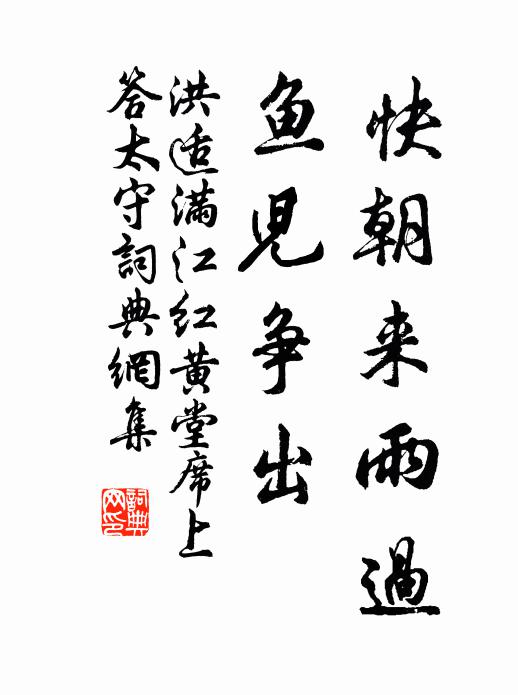 快朝来雨過
鱼児争出
洪适满江红黄堂席上
答太守詞典網集
詞典網印